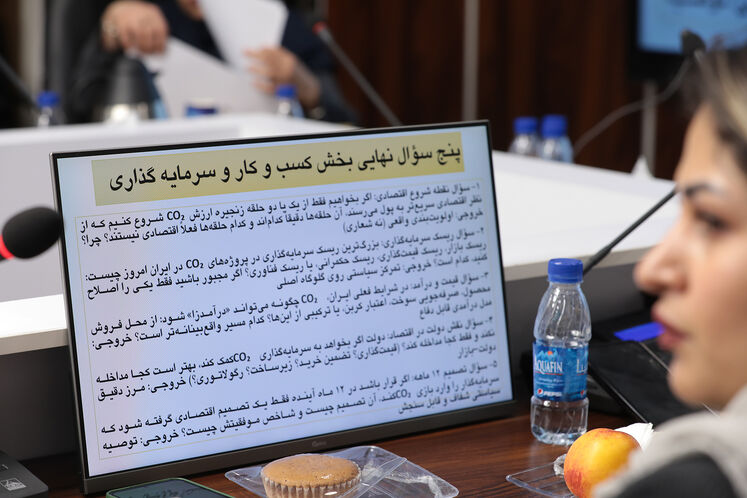 پنج سؤال نهایی بخش کسب و کار و سرمایه گذاری
۱- سؤال نقطه شروع اقتصادی: اگر بخواهیم فقط از یک یا دو حلقه زنجیره ارزش CO₂ شروع کنیم که از
نظر اقتصادی سریع‌تر به پول می‌رسند، آن حلقه‌ها دقیقاً کدام‌اند و کدام حلقه‌ها فعلاً اقتصادی نیستند؟ چرا؟
خروجی: اولویت‌بندی واقعی (نه شعاری)
۲- سؤال ریسک سرمایه‌گذاری: بزرگ‌ترین ریسک سرمایه‌گذاری در پروژه‌های CO₂ در ایران امروز چیست:
ریسک بازار، ریسک قیمت‌گذاری، ریسک حکمرانی، یا ریسک فناوری؟ اگر مجبور باشید فقط یکی را اصلاح
کنید، کدام است؟ خروجی: تمرکز سیاستی روی گلوگاه اصلی
۳- سؤال قیمت و درآمد: در شرایط فعلی ایران، CO₂ چگونه می‌تواند «درآمدزا» شود: از محل فروش
محصول، صرفه‌جویی سوخت، اعتبار کربن، یا ترکیبی از این‌ها؟ کدام مسیر واقع‌بینانه‌تر است؟ خروجی:
مدل درآمدی قابل دفاع
۴- سؤال نقش دولت در اقتصاد: دولت اگر بخواهد به سرمایه‌گذاری CO₂ کمک کند، بهتر است کجا مداخله
نکند و فقط کجا مداخله کند؟ (قیمت‌گذاری؟ تضمین خرید؟ زیرساخت؟ رگولاتوری؟) خروجی: مرز دقیق
دولت-بازار
۵- سؤال تصمیم ۱۲ ماهه: اگر قرار باشد در ۱۲ ماه آینده فقط یک تصمیم اقتصادی گرفته شود که
سرمایه‌گذار را وارد بازی CO₂ کند، آن تصمیم چیست و شاخص موفقیتش چیست؟ خروجی: توصیه
سیاستی شفاف و قابل سنجش
AQUAFINA